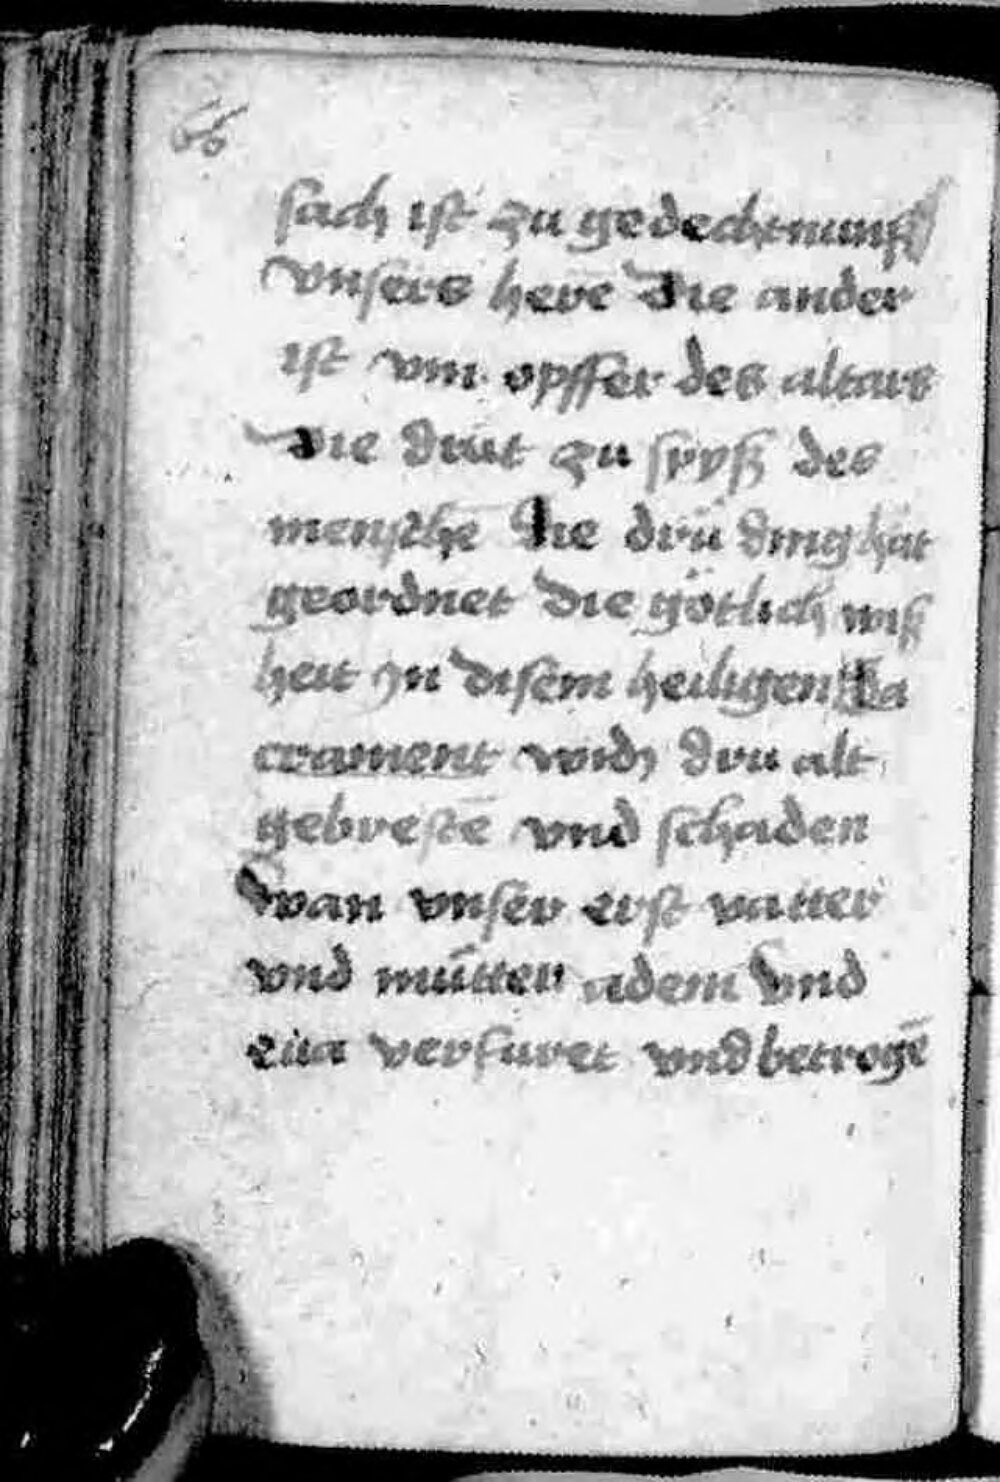 sach ist zu gedechtnuniß
vnsers herē die ander
ist vm opffer des altars
die drùt zu spyß des
menschē die drü ding hät
geordnet die götlich wiß
heit yn disem heiligen sa
crament wid drü alt
gebrestē vnd schaden
wan vnser erst vatter
vnd mùtter adem vnd
eua verfuret vnd betrogē